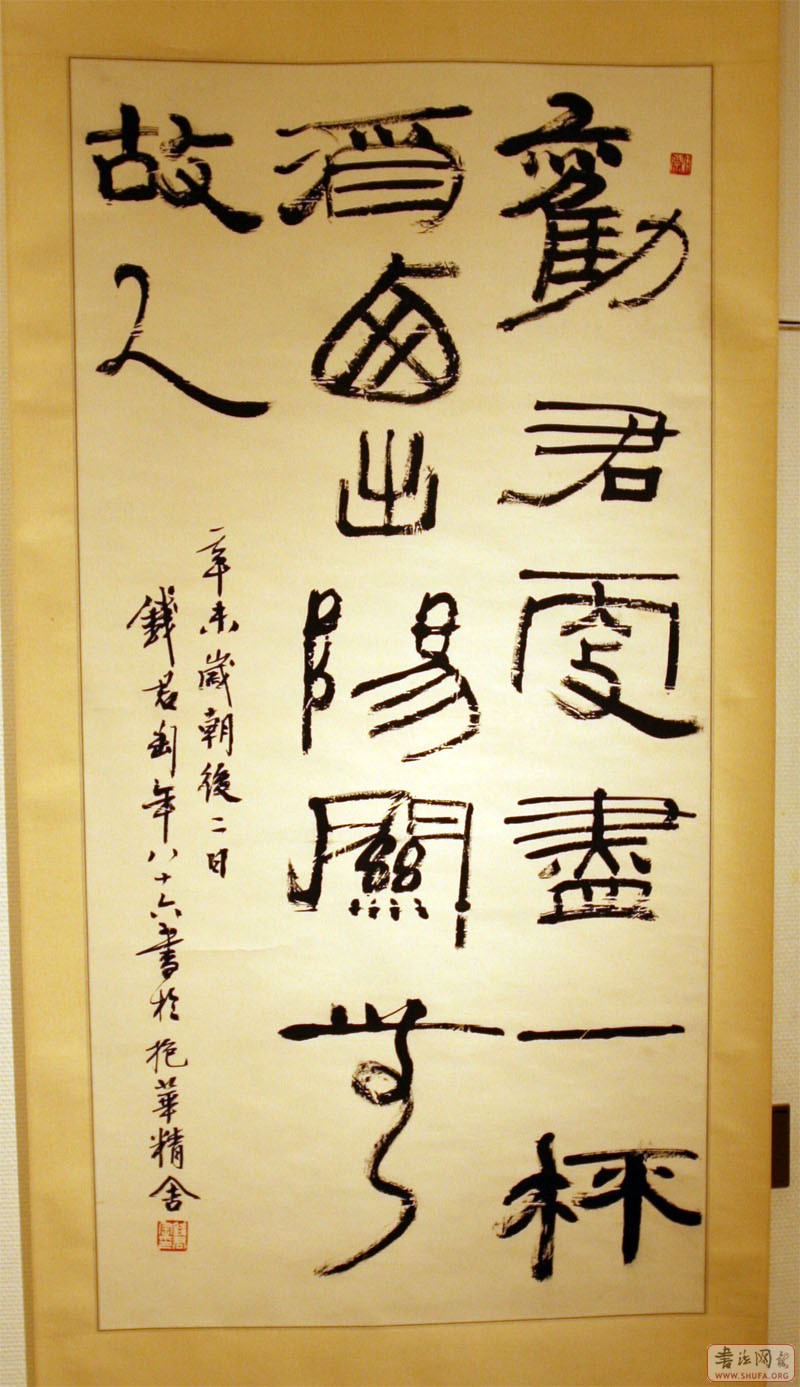 勸君更盡一杯
酒西出陽關無
故人
辛未歲朝後二日
錢君匋年八十六書於抱華精舍
書法网
WWW.SHUFA.ORG